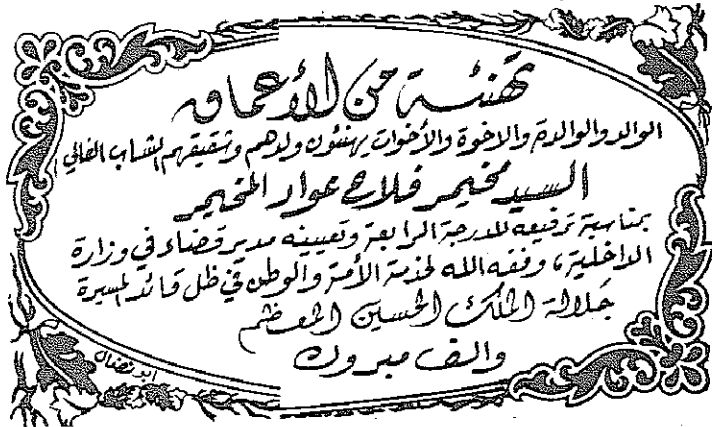 تهنئة من الأعماق
الوالد والوالدة والاخوة والأخوات يهنئون ولدهم وشقيقهم الشاب الغالي
السيد مخيمر فلاح عواد المخيمر
بمناسبة ترفيعه للدرجة الرابعة وتعيينه مدير قضاء في وزارة
الداخلية، وفقه الله لخدمة الأمة والوطن في ظل قائد المسيرة
جلالة الملك الحسين المعظم
والف مبروك
ابو نضال